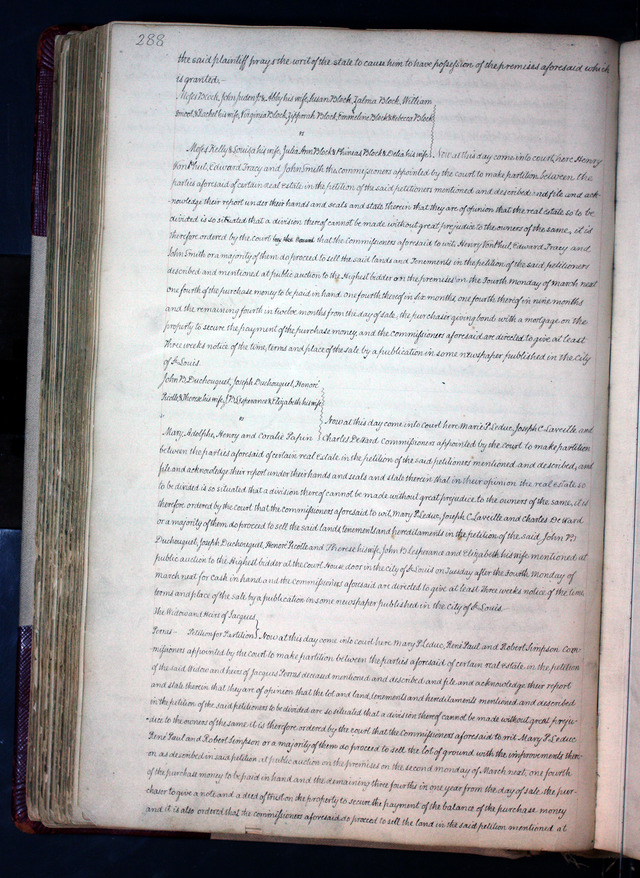 288
the said plaintiff prays the writ of the state to cause him to have possession of the premises aforesaid which
is granted.—
Moses Block, John Judon Jr & Abby his wife, Susan Block, Zalma Block, William
& Rachel his wife, Virginia Block, Zipporah Block, Emmeline Block & Rebecca Block
"
Moses Kelly & Louisa his wife, Julia Ann Block & Phineas Block & Delia his wife Now at this day come into court here Henry
Von Phul, Edward Tracy and John Smith the commissioners appointed by the court to make partition between the
parties aforesaid of certain real estate in the petition of the said petitioners mentioned and described and file and ack-
nowledge their report under their hands and seals and state therein that they are of opinion that the real estate so to be
divided is so situated that a division thereof cannot be made without great prejudice to the owners of the same, it is
therefore ordered by the court that the commissioners aforesaid to wit, Henry Von Phul, Edward Tracy and
John Smith or a majority of them do proceed to sell the said lands and tenements in the petition of the said petitioners
described and mentioned at public auction to the Highest bidder on the premises on the Fourth monday of march next
one fourth of the purchase money to be paid in hand, one fourth thereof in six months, one fourth thereof in nine months
and the remaining fourth in twelve months from the day of sale, the purchaser giving bond with a mortgage on the
property to secure the payment of the purchase money, and the commissioners aforesaid are directed to give at least
three weeks notice of the time, terms and place of the sale by a publication in some newspaper published in the City
of St. Louis.
John B. Duchouquet, Joseph Duchouquet, Honoré
Picotte & Therese his wife, J.B. Lesperance & Elizabeth his wife
" Now at this day come into court here Marie P. Leduc, Joseph C. Laveille and
Mary, Adolphe, Henry and Coralie Papin Charles DeWard Commissioners appointed by the court to make partition
between the parties aforesaid of certain real estate in the petition of the said petitioners mentioned and described, and
file and acknowledge their report under their hands and seals and state therein that in their opinion the real estate so
to be divided is so situated that a division thereof cannot be made without great prejudice to the owners of the same, it is
therefore ordered by the court that the commissioners aforesaid to wit, Mary P. Leduc, Joseph C. Laveille and Charles DeWard
or a majority of them do proceed to sell the said lands, tenements and hereditaments in the petition of the said John B
Duchouquet, Joseph Duchouquet, Honoré Picotte and Therese his wife, John B. Lesperance and Elizabeth his wife mentioned at
public auction to the Highest bidder at the court House door in the City of St Louis on Tuesday after the Fourth Monday of
march next for cash in hand and the commissioners aforesaid are directed to give at least three weeks notice of the time,
terms and place of the sale by a publication in some newspaper published in the City of St Louis.—
The Widow and Heirs of Jacques
Petition for Partition Now at this day come into court here Mary P. Leduc, René Paul and Robert Simpson Com-
missioners appointed by the court to make partition between the parties aforesaid of certain real estate in the petition
of the said Widow and heirs of Jacques deceased mentioned and described and file and acknowledge their report
and state therein that they are of opinion that the lot and land, tenements and hereditaments mentioned and described
in the petition of the said petitioners to be divided are so situated that a division thereof cannot be made without great preju-
-dice to the owners of the same it is therefore ordered by the court that the Commissioners aforesaid to wit Mary P. Leduc
René Paul and Robert Simpson or a majority of them do proceed to sell the lot of ground with the improvements there-
on as described in said petition at public auction on the premises on the second monday of March next, one fourth
of the purchase money to be paid in hand and the remaining three fourths in one year from the day of sale the pur-
-chaser to give a note and a deed of trust on the property to secure the payment of the balance of the purchase money
and it is also ordered that the commissioners aforesaid do proceed to sell the land in the said petition mentioned at